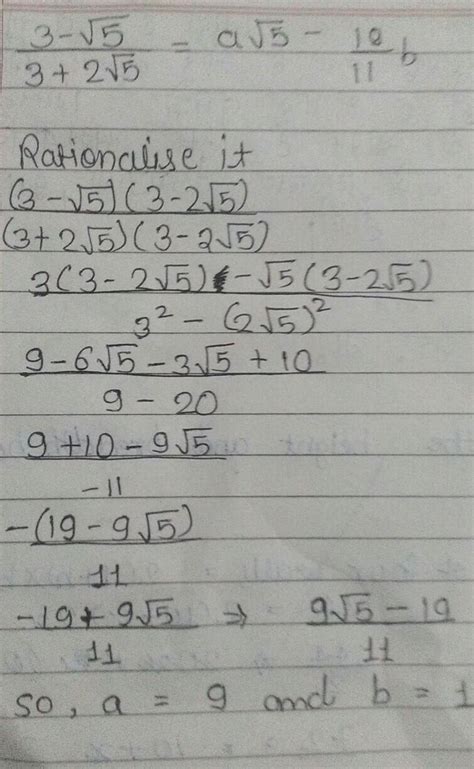 3-√5 = a√5 - 19 b
3+2√5 11
Rationalise it
(3-√5)(3-2√5)
(3+2√5)(3-2√5)
3(3-2√5) -√5(3-2√5)
3² - (2√5)²
9-6√5-3√5+10
9-20
9+10-9√5
-11
-(19-9√5)
11
-19+9√5 ⇒ 9√5-19
11 11
so, a = 9 and b = 1